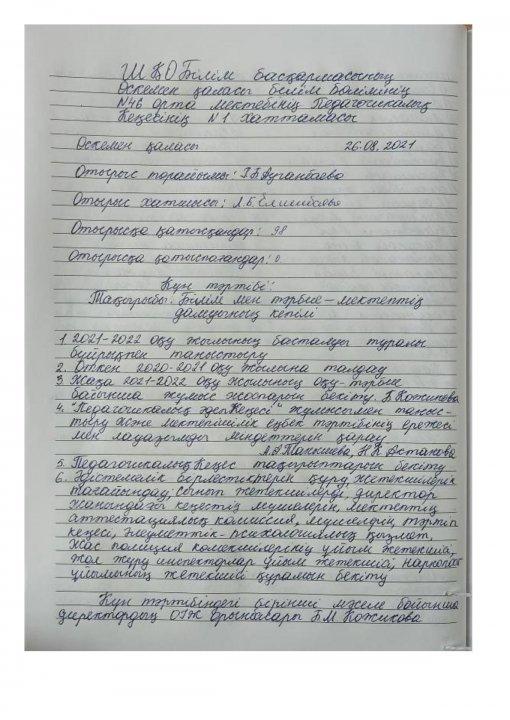 ШҚО Білім басқармасының
Өскемен қаласы білім бөлімінің
N46 орта мектебінің Педагогикалық
Кеңесінің N1 хаттамасы
Өскемен қаласы 26.08.2021
Отырыс төрайымы: Г.Б.Ауганбаева
Отырыс хатшысы: Л.Б.
Отырысқа қатысқандар: 98
Отырысқа қатыспағандар: 0
Күн тәртібі:
Тақырыбы: Білім мен тәрбие – мектептің
дамуының кепілі
1. 2021-2022 оқу жылының басталуы туралы
бұйрықпен таныстыру
2. Өткен 2020-2021 оқу жылына талдау
3 Жаңа 2021-2022 оқу жылының оқу-тәрбие
бойынша жұмыс жоспарын бекіту. Б Кожикова
4. "Педагогикалық әдеп Кеңесі" жұмысымен таныс-
тыру және мектепішілік еңбек тәртібінің ережесі
мен лауазымдық міндеттерін қарау
Н.К. Астанова
5. Педагогикалық Кеңес тақырыптарын бекіту
6. Әдістемелік бірлестіктерін құру, жетекшілерік
тағайындау, сынып жетекшілерді, директор
жанындағы кеңестің мүшелерін, мектептің
аттестациялық комиссия, мүшелерін, тәртіп
кеңесі, әлеуметтік-психологиялық қызмет,
жас полиция көмекшілерінің ұйым жетекшісі,
жол жүру инспекторлар ұйым жетекшісі, наркопост
ұйымының жетекшісі құрамын бекіту
Күн тәртібіндегі бірінші мәселе бойынша
директордың ОІЖ орынбасары Б М Кожикова